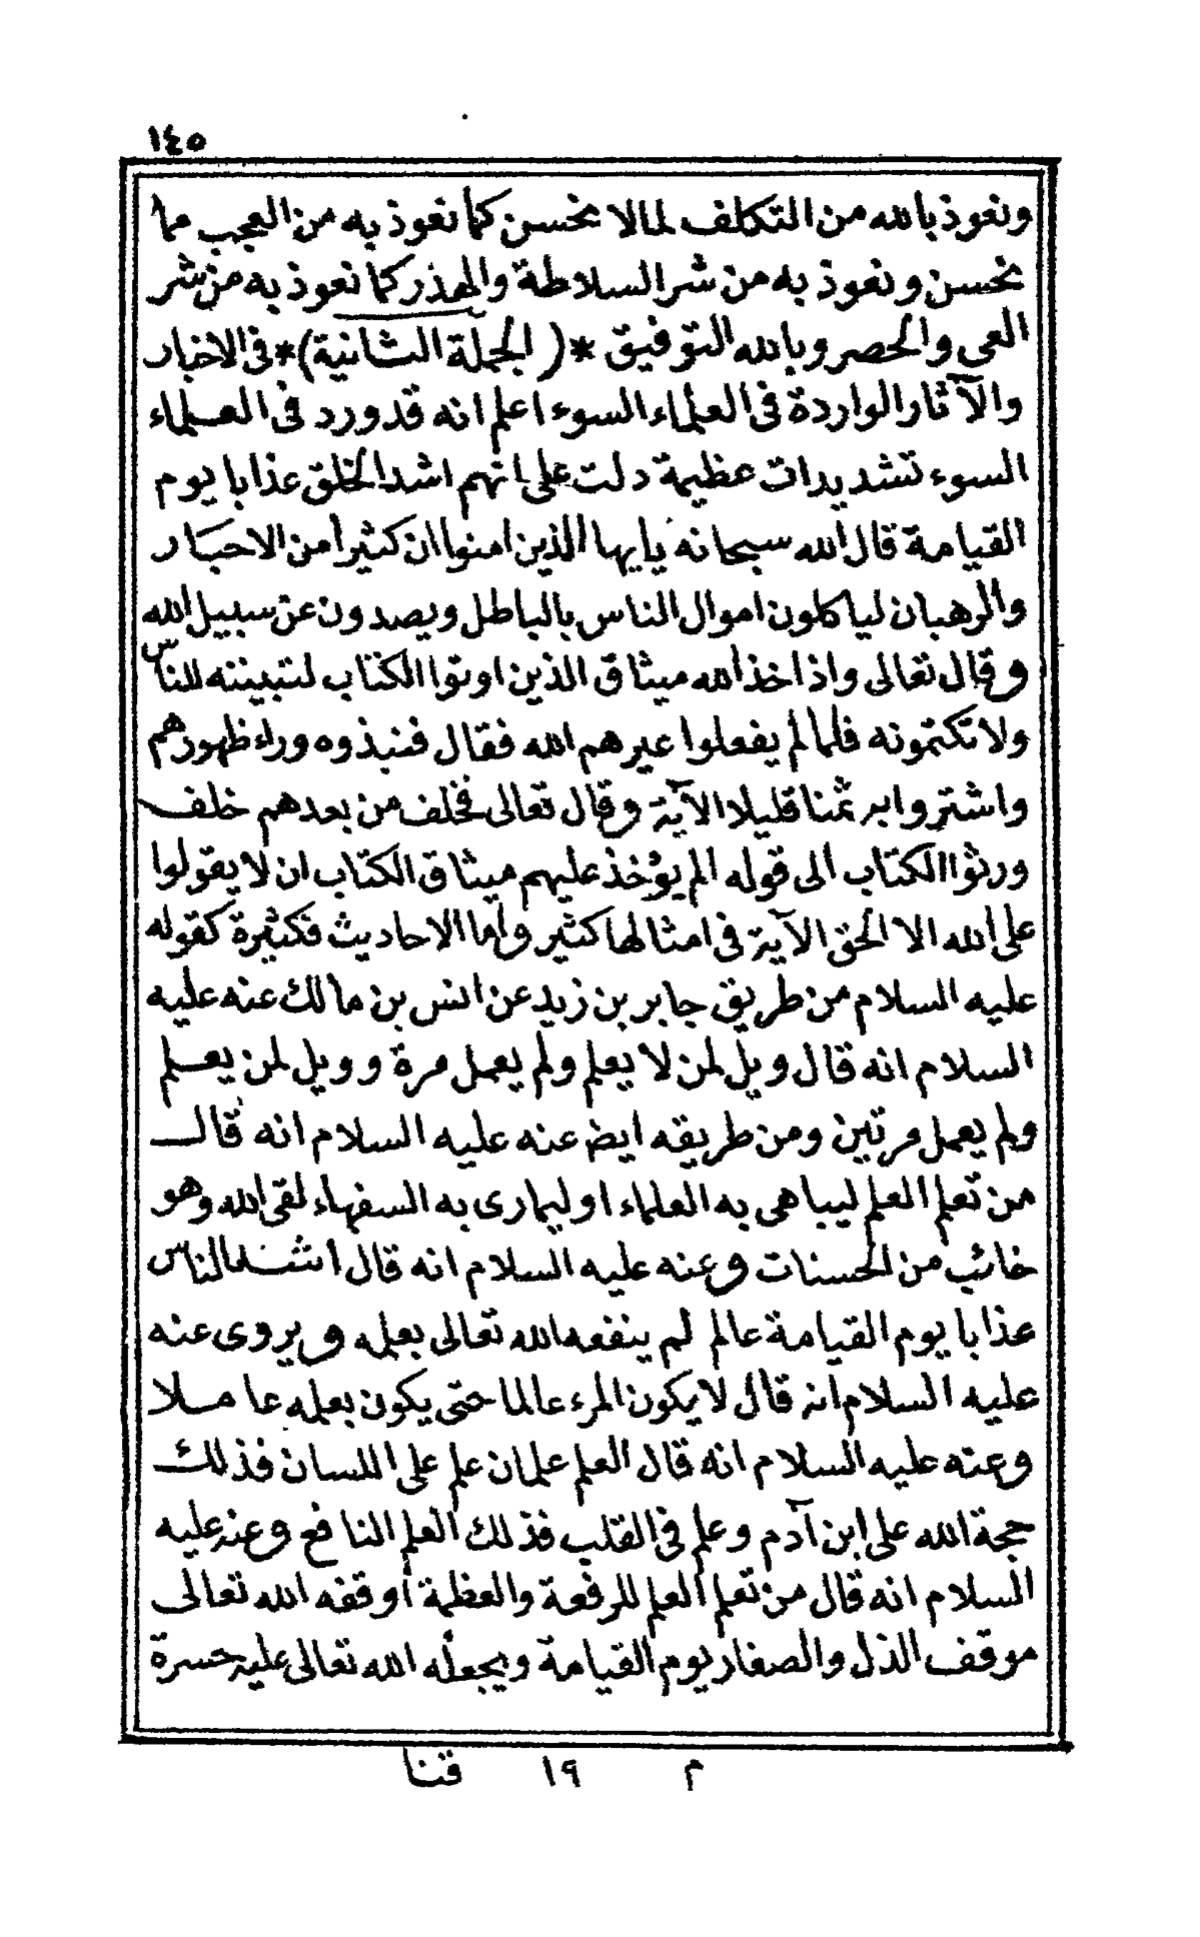 ١٤٥
ونعوذ بالله من التكلف لما لا نحسن كما نعوذ به من العجب مما
نحسن ونعوذ به من شر السلاطة والهذر كما نعوذ به من شر
العى والحصر وبالله التوفيق *( الجملة الثانية)* فى الاخبار
والآثار الواردة فى العلماء السوء اعلم انه قد ورد فى العلماء
السوء تشديدات عظيمة دلت على انهم اشد الخلق عذابا يوم
القيامة قال الله سبحانه يايها الذين امنوا ان كثيرا من الاحبار
والرهبان لياكلون اموال الناس بالباطل ويصدون عن سبيل الله
وقال تعالى واذ اخذ الله ميثاق الذين اوتوا الكتاب لتبيننه للناس
ولا تكتمونه فلما لم يفعلوا عيرهم الله فقال فنبذوه وراء ظهورهم
واشتروا به ثمنا قليلا الآية وقال تعالى فخلف من بعدهم خلف
ورثوا الكتاب الى قوله الم يؤخذ عليهم ميثاق الكتاب ان لا يقولوا
على الله الا الحق الآية فى امثالها كثير واما الاحاديث فكثيرة كقوله
عليه السلام من طريق جابر بن زيد عن انس بن مالك عنه عليه
السلام انه قال ويل لمن لا يعلم ولم يعمل مرة وويل لمن يعلم
ولم يعمل مرتين ومن طريقه ايض عنه عليه السلام انه قال
من تعلم العلم ليباهى به العلماء او ليمارى به السفهاء لقى الله وهو
خائب من الحسنات وعنه عليه السلام انه قال اشد الناس
عذابا يوم القيامة عالم لم ينفعه الله تعالى بعلمه ويروى عنه
عليه السلام انه قال لا يكون المرء عالما حتى يكون بعلمه عاملا
وعنه عليه السلام انه قال العلم علمان علم على اللسان فذلك
حجة الله على ابن آدم وعلم فى القلب فذلك العلم النافع وعنه عليه
السلام انه قال من تعلم العلم للرفعة والعظمة أوقفه الله تعالى
موقف الذل والصغار يوم القيامة ويجعله الله تعالى عليه حسرة
م ١٩ قنا